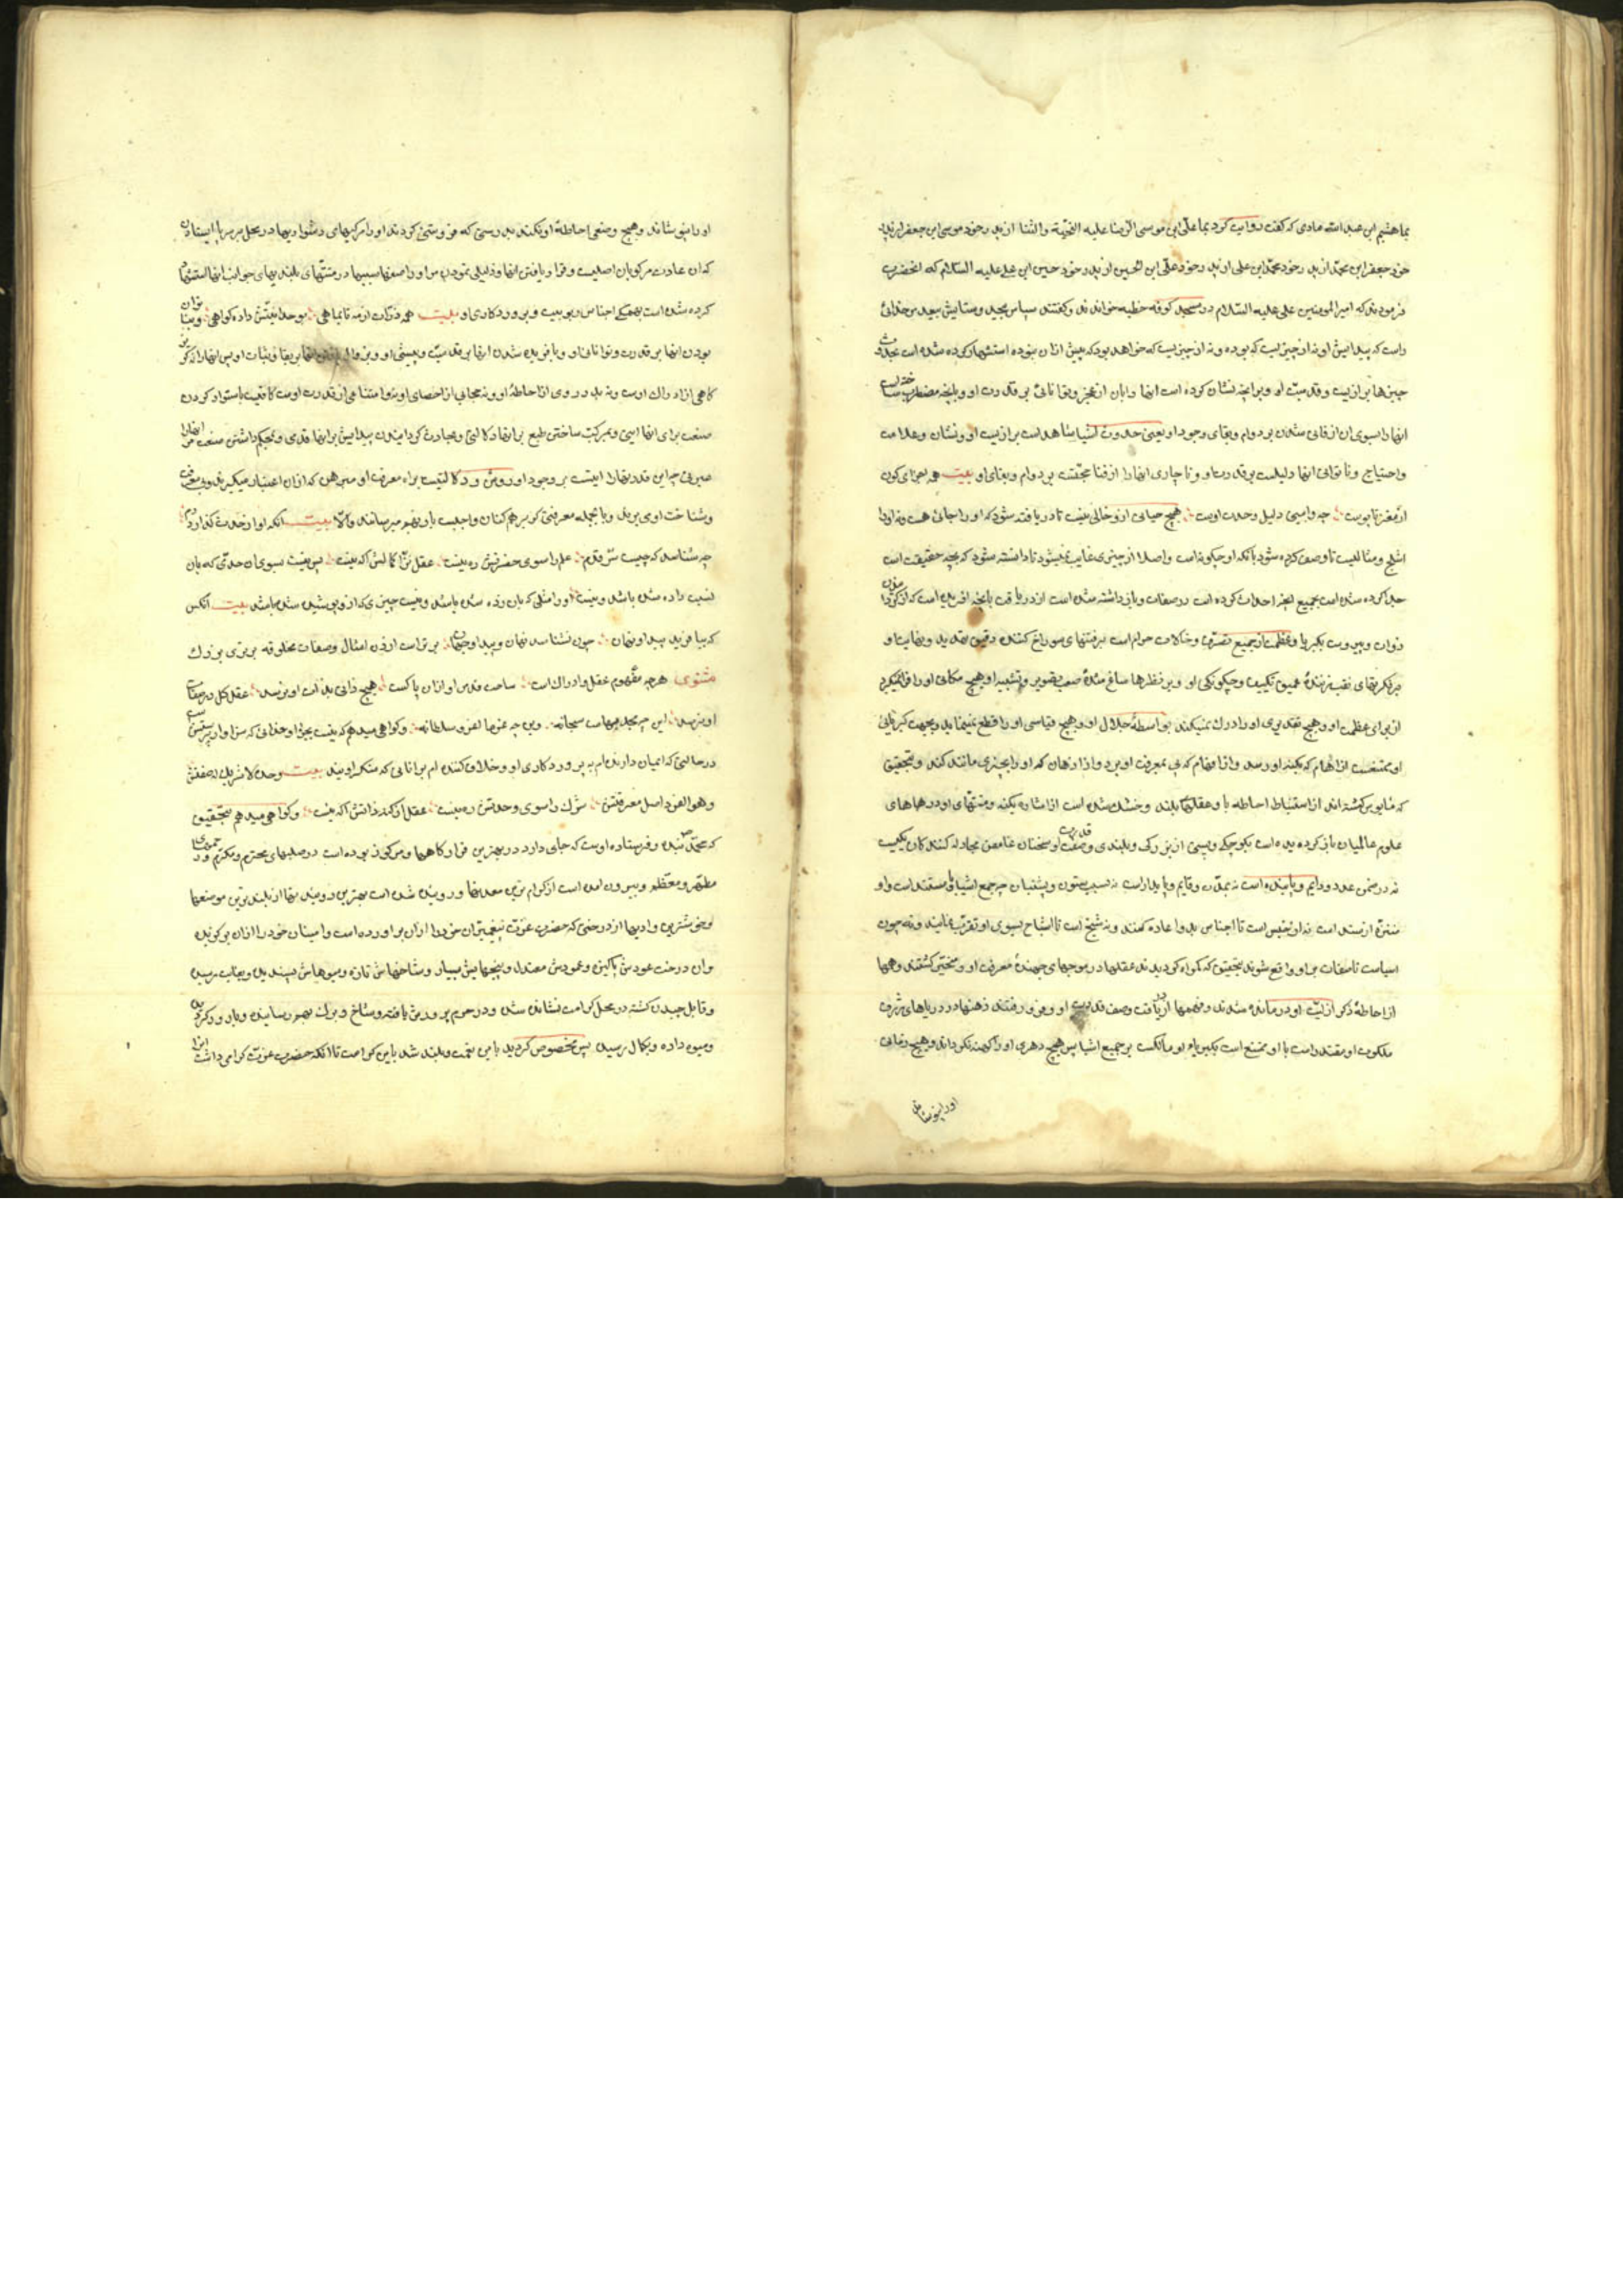 بما هشیم ابن عبد الله مادی که گفت روایت کرد بما علی ابن موسی الرضا علیه التحیة والثنا از پدر خود موسی ابن جعفر از پدر
خود جعفر ابن محمد از پدر خود محمد ابن علی از پدر خود علی ابن الحسین از پدر خود حسین ابن علی علیه السلام که انحضرت
فرمودند که امیر المومنین علی علیه السلام در مسجد کوفه خطبه خواندند و گفتند سپاس بیحد و ستایش بیعد مر خدائی
راست که پیدایش او نه از چیزیست که بوده و نه از چیزیست که خواهد بود که پیش ازان نبوده استشهاد کرده شده است بحدوث
چیزها بر ازلیت و قدمیت او و برانچه نشان کرده است انها را بان از عجز و توانائی بر قدرت او و بانچه مضطر ساخته است
انها را بسوی ان از فانی شدن بر دوام و بقای وجود او یعنی حدوث اشیا شاهد است بر ازلیت او و نشان و علامت
واحتیاج و ناتوانی انها دلیلست بر قدرت او و ناچاری انها را از فنا حجتست بر دوام و بقای او بیت همه اجزای کون
از مغز تا پوست چه وابینی دلیل وحدت اوست هیچ جایی ازو خالی نیست تا دریافته شود که او را جائی هست و نه او را
شبح و مثالیست تا وصف کرده شود بانکه او چگونه است واصلا از چیزی غایب نمیشود تا دانسته شود که بچه حقیقت است
جدا کرده شده است بجمیع انچه احداث کرده است در صفات و باز داشته شده است از دریافت بانچه افریده است که از گردانیدن
ذوات و بیرونست بکبریا و عظمت از جمیع تصرف و حالات حرام است بر فتنهای سوراخ کننده دقیق تحدید و نهایت او
بر فکرتهای نقب زنندهٔ عمیق تکییف و چگونگی او و بر نظرها صفت تصویر و تشبیه او هیچ مکانی او را فرا نمیگیرد
از برای عظمت او و هیچ تقدیری او را درک نمیکند بواسطهٔ جلال او و هیچ قیاسی او را قطع نمینماید بجهت کبریائی
او ممتنعست از اوهام که بکنه او رسد واز افهام که پی بمعرفت او برد واز اذهان که او را بچیزی مانند کند و بتحقیق
که مأیوس گشته اند از استنباط احاطه با و عقلهای بلند و خشک شده است از اشاره بکنه و منتهای او دریاهای
علوم عالمیان باز گردیده است بکوچکی و پستی از بزرگی و بلندی وصف قدرت او سخنان غامض مجادله کنندگان یکیست
نه در ضمن عدد و دایم و پاینده است نه بمدت و قایم و پایدار است نه بسبب ستون و پشتبان
نه از جنس است تا اجناس بدو اعاده کنند و نه شبح است تا اشباح بسوی او تقرب نمایند و نه چون
اشیاست تا صفات بر او واقع شوند بتحقیق که گمراه گردیدند عقلها در موجهای جهندهٔ معرفت او و متحیر گشتند وهمها
از احاطهٔ ذکر ازلیت او درمانده شدند وفهمها از دریافت وصف قدرت او و فرو رفتند ذهنها در دریاهای ژرف
ملکوت او مقتدر است با او ممتنع است بکبریاء او مالکست بر جمیع اشیا پس هیچ دهری او را کهنه نگرداند و هیچ وصفی
او را نپوشاند
او را نپوشاند و هیچ وصفی احاطه او نکند بدرستی که فروتنی کردند او را مرکبهای دشواریها در محل بر پا ایستادن
که ان عادت مرکوبان اصلیت وقرار یافتن انها و ذلیلی نمودن مر او را صعبها سببها در منتهای بلندیهای جوانب انها استشهاد
کرده شده است بهمگی اجناس ربوبیت و پروردگاری او بیت همه ذرات از مه تا بماهی بوحدانیتش داده گواهی و بناتوان
بودن انها بر قدرت و توانائی او و بافریده شدن انها بر قدمیت و پیشی او و بزوال انها بر بقا و ثبات او پس انها را نه گریز
گاهی از ادراک اوست و نه بدرروی از احاطهٔ او و نه حجابی از احصای او نه امتناعی از قدرت اوست کافیست باستوار کردن
صنعت برای انها ایتی و بمرکب ساختن طبع بر انها دلالتی و بحادث گردانیدن پیدایش بر انها قدمی و بمحکم داشتن صنعت مر انها را
عبرتی چه این قدرتها را ایتیست بر وجود او روشن و دلالتیست براه معرفت او مبرهن که ازان اعتبار میگیرند و پی بمعرفت
وشناخت او می برند و بالجمله معرفتی که بر همه کنان واجبست باو بهم میرسانند والا بیت انکه او از حدث گذارد دم
چه شناسد که چیست سر قدم علم را سوی حضرتش ره نیست عقل نیز از کمالش اگه نیست پس نیست بسوی ان حدی که بان
نسبت داده شده باشد و نیست او را مثلی که بان زده شده باشد و نیست چیزی که ازو پوشیده شده باشد بیت انکس
که بیافرید پیدا و نهان چون نشناسد نهان و پیدای جهان برتر است از زدن امثال وصفات مخلوقه برتری بزرگ
مثنوی هرچه مفهوم عقل وادراک است ساحت قدس او ازان پاکست هیچ ذاتی بذات او نرسد عقل کل در صفات
او نرسد این چه مجد بهاست سبحانه وین چه عزوعلا لعز سلطانه وگواهی میدهم که نیست بجز او خدائی که سزاوار پرستش است
درحالتی که ایمان دارنده ام به پروردگاری او و خلاف کننده ام بر انانی که منکر اویند بیت وحده لا شریک له صفتش
وهو الفرد اصل معرفتش شرک را سوی وحدتش ره نیست عقل از کنه ذاتش اگه نیست وگواهی میدهم بتحقیق
که محمد بنده و فرستاده اوست که جای دارد در بهترین قرارگاهها و مرکوز بوده است در صلبهای محترم و مکرم و رحمهای
مطهر و معظم و بیرون امده است از گرام ترین معدنها و روییده شده است بهترین روییدنها از بلندترین موضعها
وخوشترین وادیها از درختی که حضرت عزت پیغمبران خود را ازان بر اورده است وامینان خود را ازان برگزیده
وان درخت عودش پاکیزه و عمودش معتدل و بیخهایش بسیار و شاخهایش تازه و میوهایش پسندیده و بغایت رسیده
وقابل چیدن گشته در محل کرامت نشانده شده و در حرم پرورش یافته و شاخ و برگ بهم رسانیده و بارور گردیده
ومیوه داده و بکمال رسیده پس مخصوص گردید باین نعمت و بلند شد باین کرامت تا انکه حضرت عزت گرامی داشت